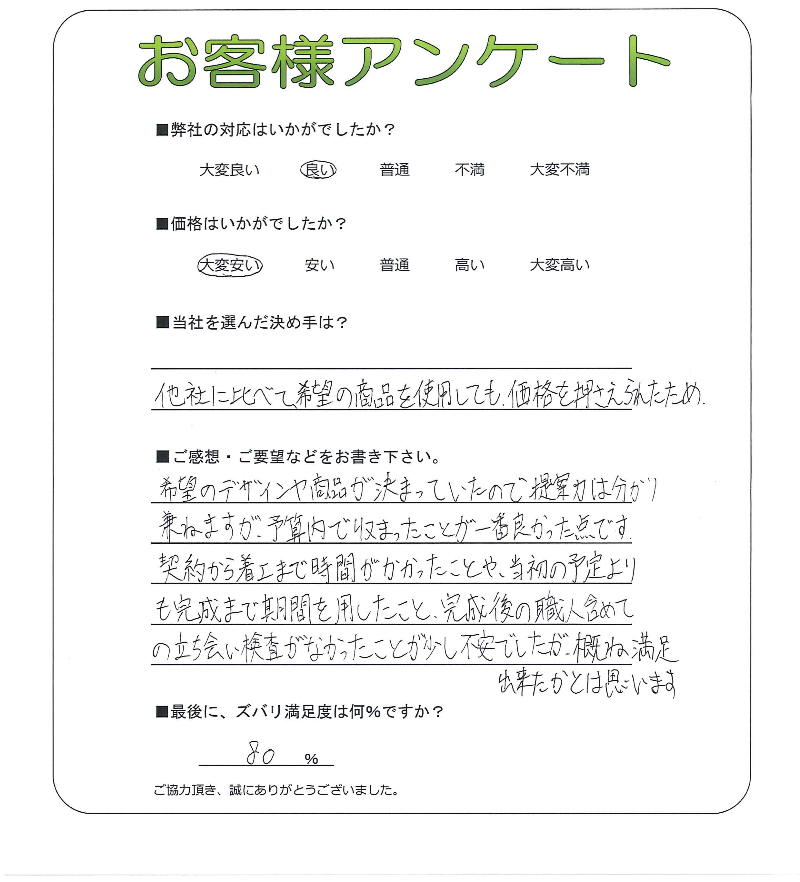 お客様アンケート
■弊社の対応はいかがでしたか？
大変良い 良い 普通 不満 大変不満
■価格はいかがでしたか？
大変安い 安い 普通 高い 大変高い
■当社を選んだ決め手は？
他社に比べて、希望の商品を使用しても、価格を押さえられたため.
■ご感想・ご要望などをお書き下さい。
希望のデザインや商品が決まっていたので提案力は分かり
兼ねますが、予算内で収まったことが一番良かった点です.
契約から着工まで時間がかかったことや、当初の予定より
も完成まで期間を用したこと、完成後の職人含めて
の立ち会い検査がなかったことが少し不安でしたが、概ね満足
出来たかとは思います
■最後に、ズバリ満足度は何%ですか？
80 %
ご協力頂き、誠にありがとうございました。